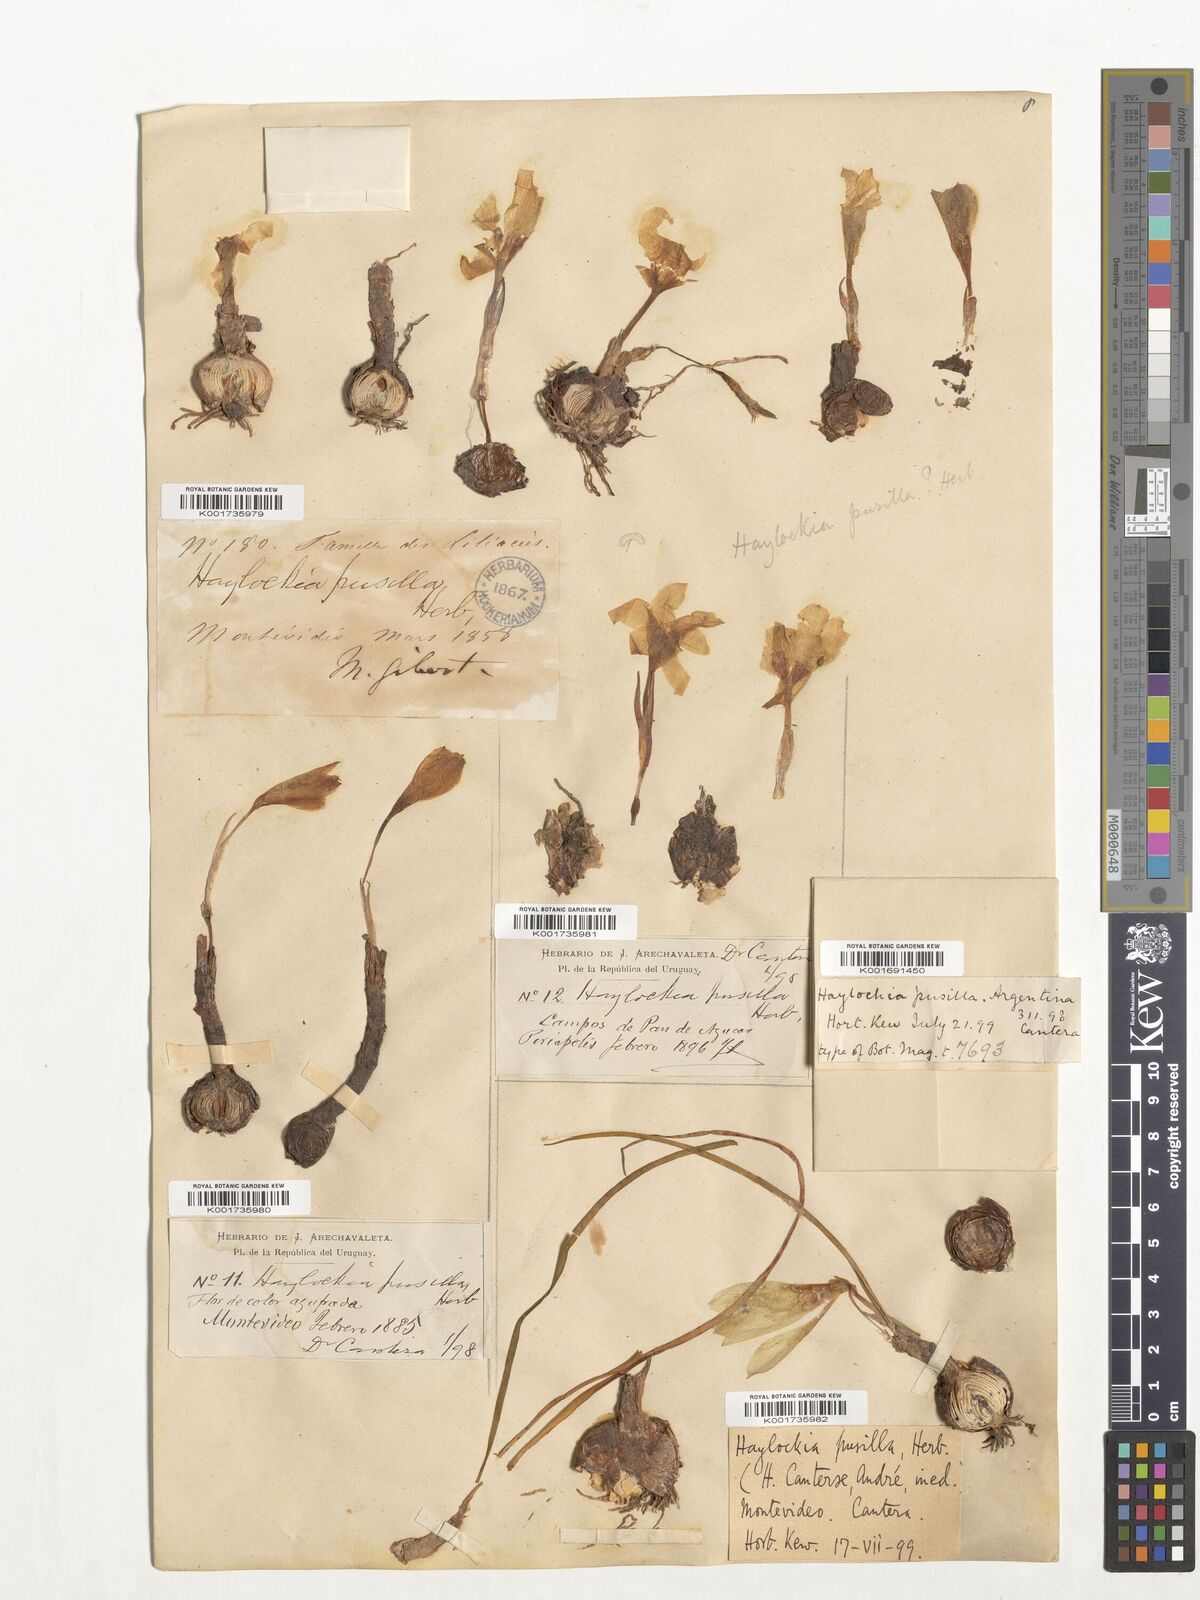 Haylockia pusilla.? Herb
ROYAL BOTANIC GARDENS KEW
K001735979
No 180. Famille des Liliacées.
Haylockia pusilla,
Herb,
Montévidéo Mars 1858
M. Gibert.
HERBARIUM
1867.
HOOKERIANUM
ROYAL BOTANIC GARDENS KEW
K001735981
HEBRARIO DE J. ARECHAVALETA. Dr Cantera
Pl. de la República del Uruguay. 1/98
No 12. Haylockia pusilla
Herb,
Campos de Pan de Azucar
Piriapolis febrero 1896
ROYAL BOTANIC GARDENS KEW
K001691450
Haylockia pusilla. Argentina
311.98
Hort. Kew July 21.99 Cantera
type of Bot. Mag. t. 7693
ROYAL BOTANIC GARDENS KEW
K001735980
HEBRARIO DE J. ARECHAVALETA.
Pl. de la República del Uruguay.
No 11. Haylockia pusilla,
Flor de color Herb
Montevideo Febrero 1885
Dr Cantera 1/98
ROYAL BOTANIC GARDENS KEW
K001735982
Haylockia pusilla, Herb.
(H. Canterae, André, ined.
Montevideo. Cantera.
Hort. Kew. 17-VII-99.
inches
centimeters
Density
Don Williams
M000648
Royal Botanic Gardens
Kew
copyright reserved
0 1 2 3 4 5 6 7 8 9 10
cm